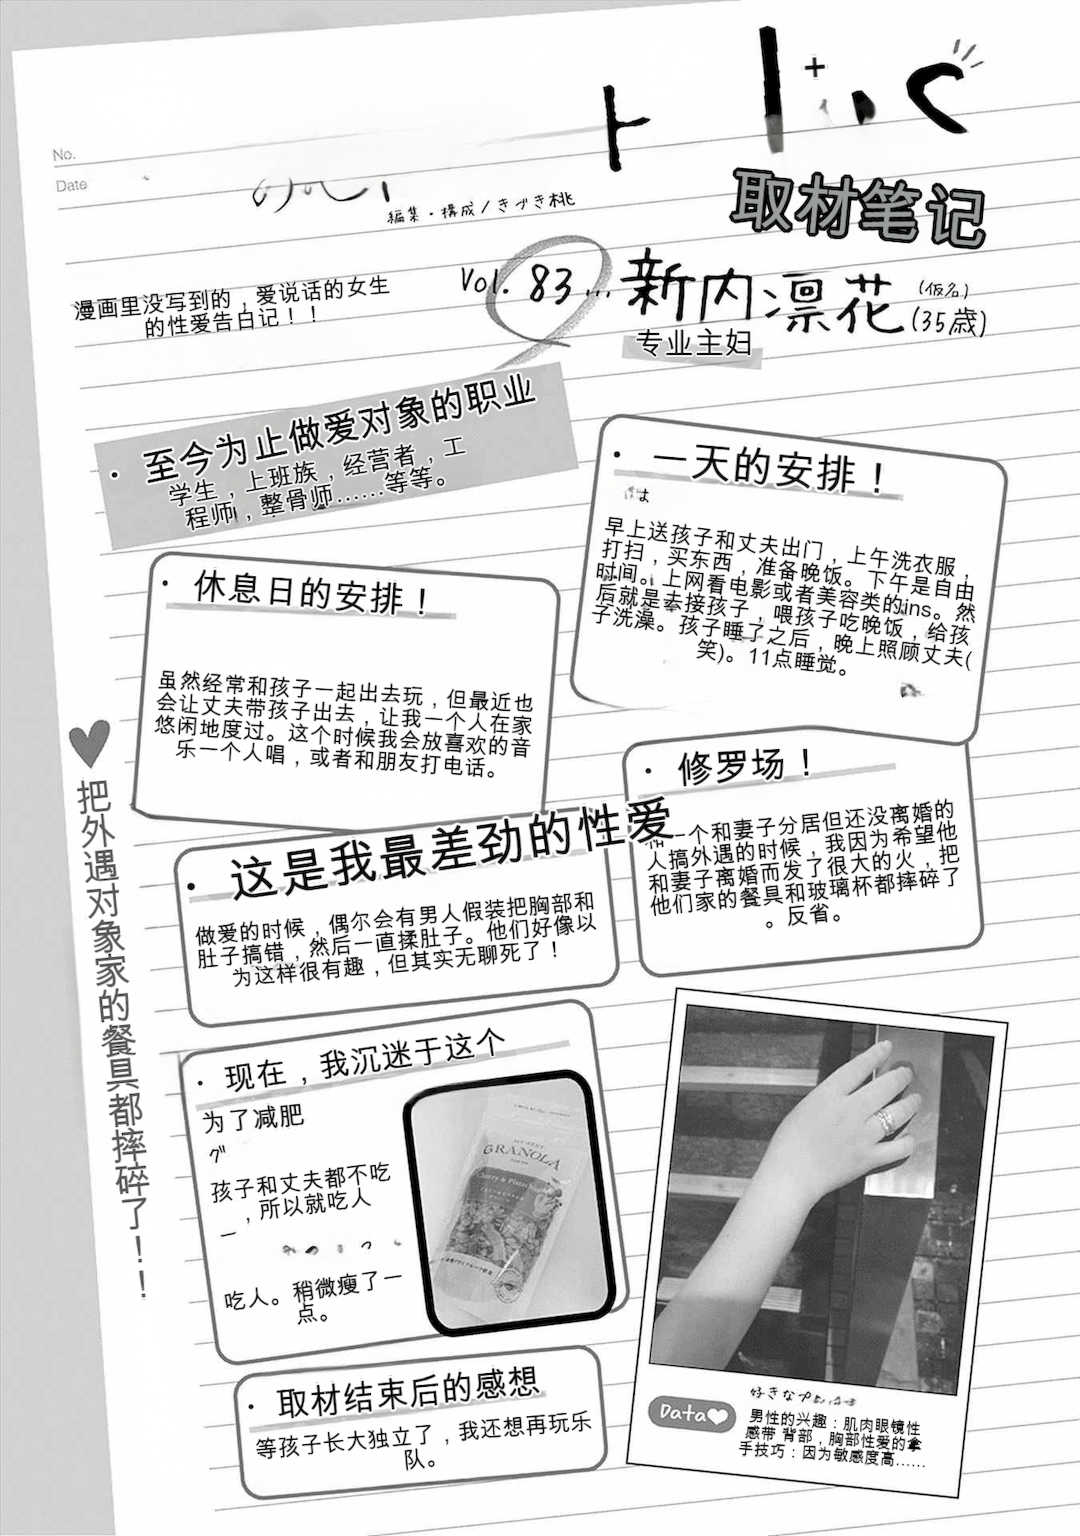 No.
Date
編集・構成/きづき桃
取材笔记
漫画里没写到的，爱说话的女生
的性爱告白记！！
Vol. 83...新内凛花(仮名)(35歳)
专业主妇
・至今为止做爱对象的职业
学生，上班族，经营者，工
程师，整骨师……等等。
・一天的安排！
早上送孩子和丈夫出门，上午洗衣服，
打扫，买东西，准备晚饭。下午是自由
时间。上网看电影或者美容类的ins。然
后就是奉接孩子，喂孩子吃晚饭，给孩
子洗澡。孩子睡了之后，晚上照顾丈夫(
笑)。11点睡觉。
・休息日的安排！
虽然经常和孩子一起出去玩，但最近也
会让丈夫带孩子出去，让我一个人在家
悠闲地度过。这个时候我会放喜欢的音
乐一个人唱，或者和朋友打电话。
・修罗场！
和一个和妻子分居但还没离婚的
人搞外遇的时候，我因为希望他
和妻子离婚而发了很大的火，把
他们家的餐具和玻璃杯都摔碎了
。反省。
♥把外遇对象家的餐具都摔碎了！！
・这是我最差劲的性爱
做爱的时候，偶尔会有男人假装把胸部和
肚子搞错，然后一直揉肚子。他们好像以
为这样很有趣，但其实无聊死了！
・现在，我沉迷于这个
为了减肥
グ
孩子和丈夫都不吃
，所以就吃人
一
吃人。稍微瘦了一
点。
GRANOLA
・取材结束后的感想
等孩子长大独立了，我还想再玩乐
队。
Data♥
好きなプ
男性的兴趣：肌肉眼镜性
感带 背部，胸部性爱的拿
手技巧：因为敏感度高……